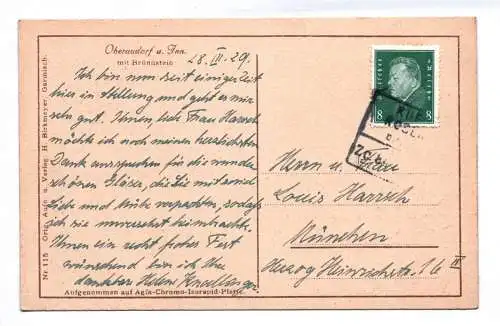 Oberaudorf u. Inn.
mit Brünnstein
28. III. 29.
Ich bin nun seit einiger Zeit
hier in Stellung und geht es mir
sehr gut. Ihnen, liebe Frau Harrsch
möchte ich noch meinen herzlichsten
Dank aussprechen für die wunder
schönen Gläser, die Sie mit so viel
Liebe und Mühe verpackten, so daß
ich sie unversehrt heimbrachte.
Ihnen ein recht frohes Fest
wünschend bin ich Ihre
dankbare Helene
Aufgenommen auf Agfa-Chromo-Isorapid-Platte.
Nr. 115 Orig. Aufn. u. Verlag H. Birkmeyer, Garmisch.
8 8
Herrn u. Frau
Louis Harrsch
München
Herzog Heinrichstr. 16 III